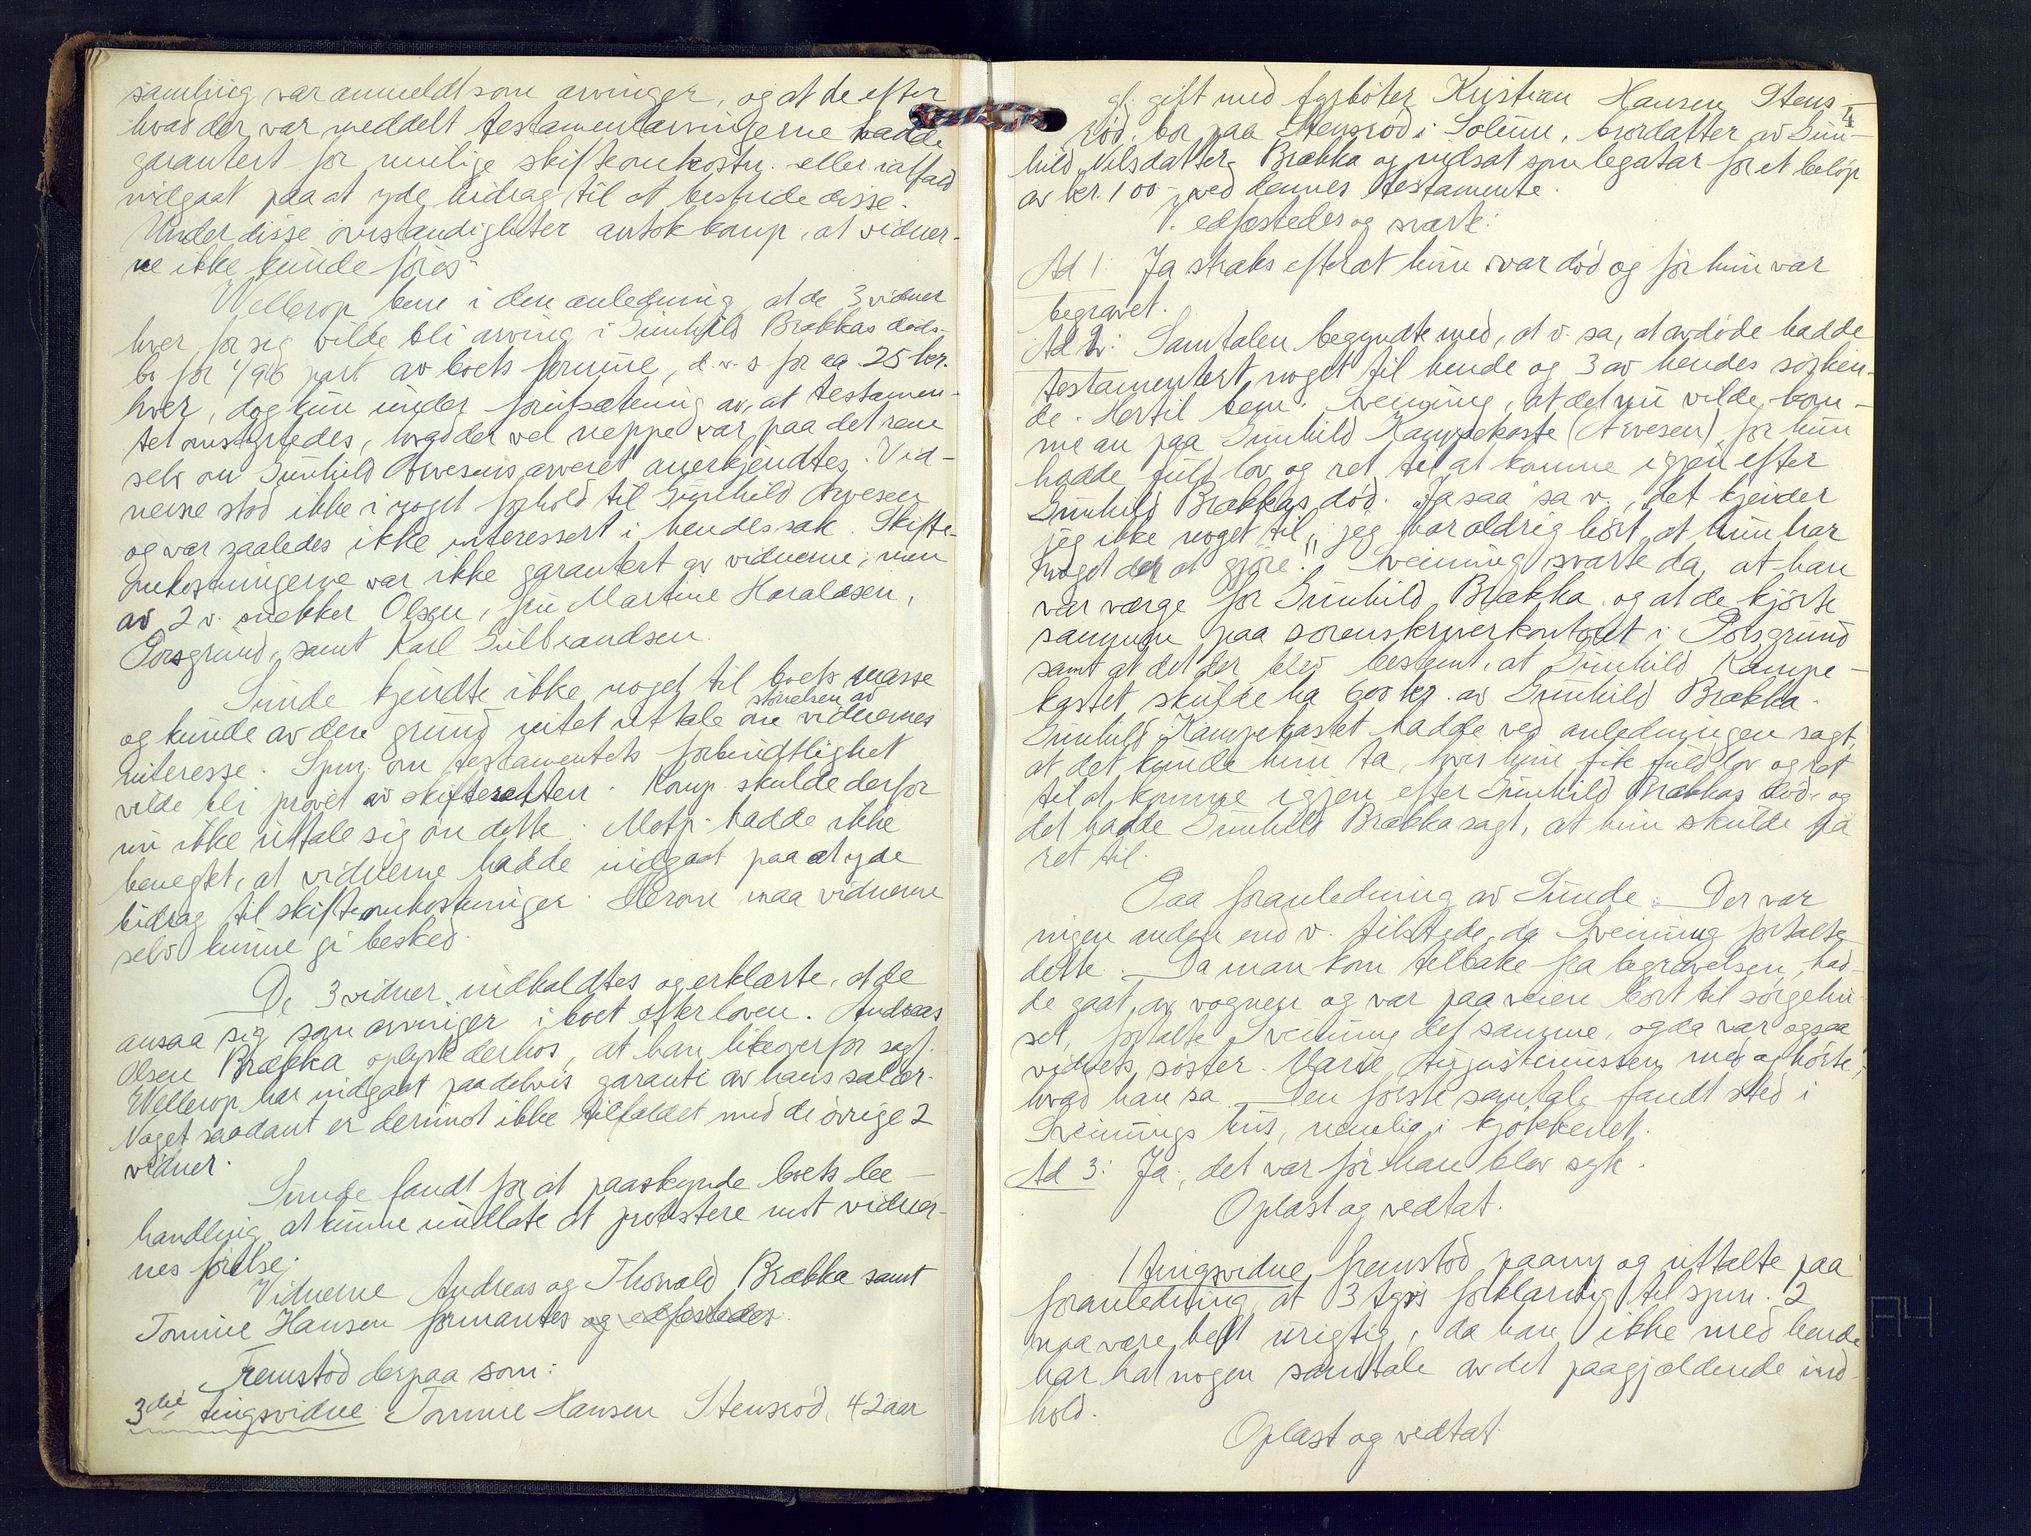 samling var anmeldt som arvinger, og at de efter
hvad der var meddelt testamentarvingerne hadde
garantert for mulige skifteomkostn. eller ialfald
indgaat paa at yde bidrag til at bestride disse.
Under disse omstændigheter antok komp. at vidner-
ne ikke kunde føres.
Wellerop bem. i den anledning, at de 3 vidner
hver for sig vilde bli arving i Gunhild Brækkas døds-
bo for 1/96 part av boets formue, d.v.s for ca 25 kr.
hver, dog kun under forutsætning av, at testamen-
tet omstyrtedes, hvad der vel neppe var paa det rene
selv om Gunhild Arvesens arveret anerkjendtes. Vid-
nerne stod ikke i noget forhold til Gunhild Arvesen
og var saaledes ikke interessert i hendes sak. Skifte-
omkostningerne var ikke garantert av vidnerne, men
av 2 v. snekker Olsen, fru Martine Haraldsen,
Porsgrund, samt Karl Gulbrandsen.
Sunde kjendte ikke noget til boets masse
og kunde av den grund intet uttale om størrelsen av vidnernes
interesse. Spm. om testamentets forbindtlighet
vilde bli prøvet av skifteretten. Komp. skulde derfor
nu ikke uttale sig om dette. Motp. hadde ikke
benegtet, at vidnerne hadde indgaat paa at yde
bidrag til skifteomkostninger. Herom maa vidnerne
selv kunne gi besked.
De 3 vidner indkaldtes og erklærte, at de
ansaa sig som arvinger i boet efter loven. Andreas
Olsen Brækka oplyste derhos, at han likeoverfor sagf.
Wellerop har indgaat paa delvis garanti av hans salær.
Noget saadant er derimot ikke tilfældet med de øvrige 2
vidner.
Sunde fandt for at paaskynde boets be-
handling at kunne undlate at protestere mot vidner-
nes førelse.
Vidnerne Andreas og Thorvald Brækka samt
Tomine Hansen formantes og edfæstedes.
Fremstod derpaa som:
3die tingsvidne Tomine Hansen Stensrød, 42 aar
4
gl. gift med fyrbøter Kristian Hansen Stens-
rød, bor paa Stensrød i Solum, brordatter av Gun-
hild Nilsdatter Brækka og indsat som legatar for et beløp
av kr. 100- ved dennes testamente.
V. edfæstedes og svarte:
Ad 1: Ja straks efterat hun var død og før hun var
begravet.
Ad 2: Samtalen begyndte med, at v. sa, at avdøde hadde
testamentert noget til hende og 3 av hendes søsken-
de. Hertil bem. Sveinung, at det nu vilde kom-
me an paa Gunhild Kampekaste (Arvesen), for hun
hadde fuld lov og ret til at komme igjen efter
Gunhild Brækkas død. "Ja saa" sa v., "det kjender
jeg ikke noget til, jeg har aldrig hørt, at hun har
noget der at gjøre." Sveinung svarte da, at han
var værge for Gunhild Brækka, og at de kjørte
sammen paa sorenskriverkontoret i Porsgrund
samt at det der blev bestemt, at Gunhild Kampe-
kastet skulde ha 600 kr. av Gunhild Brækka.
Gunhild Kampekastet hadde ved anledningen sagt,
at det kunde hun ta, hvis hun fik fuld lov og ret
til at komme igjen efter Gunhild Brækkas død, og
det hadde Gunhild Brækka sagt, at hun skulde ha
ret til.
Paa foranledning av Sunde. Der var
ingen anden end v. tilstede, da Sveinung fortalte
dette. Da man kom tilbake fra begravelsen, had-
de gaat av vognen og var paa veien bort til sørgehu-
set, fortalte Sveinung det samme, og da var ogsaa
vidnets søster Marie Augustinussen med og hørte,
hvad han sa. Den første samtale fandt sted i
Sveinungs hus, nemlig i kjøkkenet.
Ad 3: Ja, det var før han blev syk.
Oplæst og vedtat.
1 tingsvidne fremstod paany og uttalte paa
foranledning, at 3 tgvs forklaring til spm. 2
maa være helt urigtig, da han ikke med hende
har hat nogen samtale av det paagjældende ind-
hold.
Oplæst og vedtat.